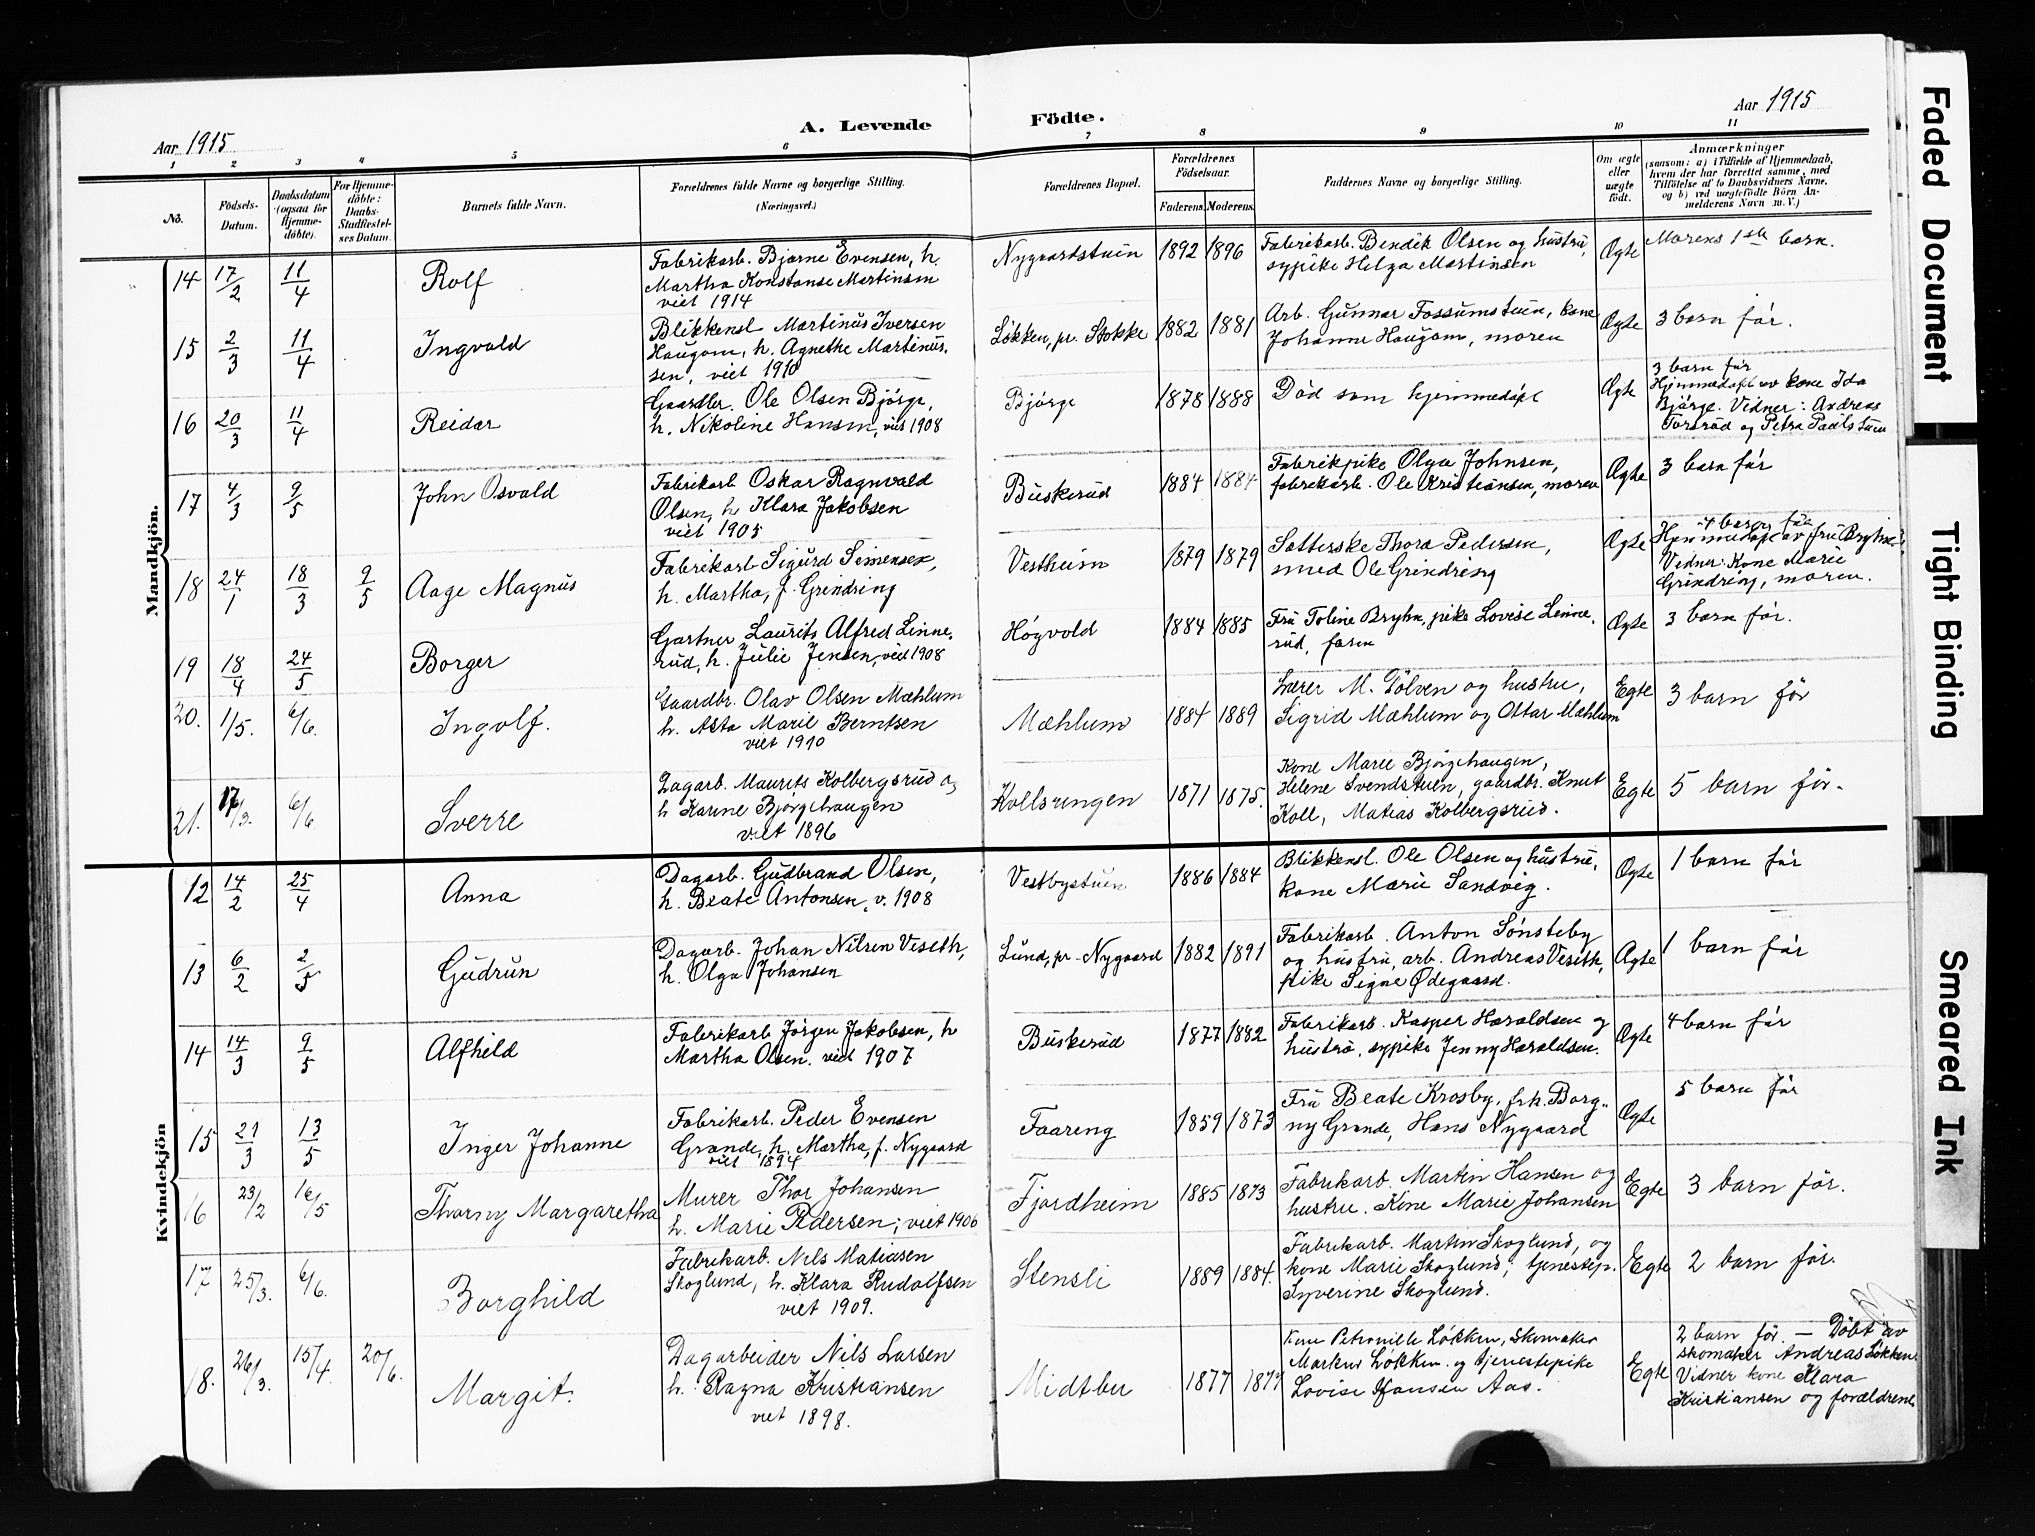 Aar 1915
A. Levende
Födte.
Aar 1915
1 2 3 4 5 6 7 8 9 10 11
No.
Fødsels-
Datum.
Daabsdatum
(ogsaa for
Hjemme-
døbte).
For Hjemme-
døbte:
Daabs-
Stadfæstel-
ses Datum.
Barnets fulde Navn.
Forældrenes fulde Navne og borgerlige Stilling.
(Næringsvei.)
Forældrenes Bopæl.
Forældrenes
Fødselsaar.
Faderens. Moderens.
Faddernes Navne og borgerlige Stilling.
Om ægte
eller
uægte
født.
Anmærkninger
(saasom: a) i Tilfælde af Hjemmedaab,
hvem der har forrettet samme, med
Tilföielse af to Daabsvidners Navne,
og b) ved uægtefödte Börn An-
melderens Navn m. V.)
Mandkjön.
14 17/2 11/4 Rolf
Fabrikarb. Bjarne Evensen, h.
Martha Konstanse Martinsen
viet 1914
Nygaardstuen 1892 1896
Fabrikarb. Bendik Olsen og hustru,
sypike Helga Martinsen
Ægte
Morens 1ste barn.
15 2/3 11/4 Ingvald
Blikkensl. Martinus Iversen
Haugom, h. Agnethe Martinus-
sen, viet 1910
Løkken, pr. Stokke 1882 1881
Arb. Gunnar Fossumstuen, kone
Johanne Haugom, moren
Ægte
3 barn før.
16 20/3 11/4 Reidar
Gaardbr. Ole Olsen Bjørge,
h. Nikoline Hansen, viet 1908
Bjørge 1878 1888
Død som hjemmedøpt
Ægte
3 barn før
Hjemmedøpt av kone Ida
Bjørge. Vidner: Andreas
Torsrud og Petra Paulstuen
17 4/3 9/5 John Osvald
Fabrikarb Oskar Ragnvald
Olsen, h Klara Jakobsen
viet 1905
Buskerud 1884 1884
Fabrikpike Olga Johnsen,
fabrikarb. Ole Kristiansen, moren
Ægte
3 barn før
18 24/1 18/3 9/5 Aage Magnus
Fabrikarb Sigurd Simensen,
h. Martha, f. Grindring
Vestheim 1879 1879
Sætterske Thora Pedersen,
smed Ole Grindreng
Ægte
4 barn før
Hjemmedøpt av fru Bryhn.
Vidner: Kone Marie
Grindreng, moren.
19 18/4 24/5 Borger
Gartner Laurits Alfred Linne-
rud, h. Julie Jensen, viet 1908
Høgvold 1884 1885
Fru Toline Bryhn, pike Lovise Linne-
rud, faren
Ægte
3 barn før.
20. 1/5. 6/6. Ingolf.
Gaardbr. Olav Olsen Mæhlum
h. Asta Marie Berntsen
viet 1910
Mæhlum 1884 1889
Lærer M. Tølven og hustru,
Sigrid Mæhlum og Ottar Mæhlum
Egte
3 barn før
21. 17/3. 6/6 Sverre
Dagarb. Maurits Kolbergsrud og
h Karine Bjørgehaugen
viet 1896
Kollsrengen 1871 1875.
Kone Marie Bjørgehaugen,
Helene Svendstuen, gaardbr. Knut
Koll, Matias Kolbergsrud.
Egte
5 barn før.
Kvindekjön
12 14/2 25/4 Anna
Dagarb. Gudbrand Olsen,
h. Beate Antonsen, v. 1908
Vestbystuen 1886 1884
Blikkensl. Ole Olsen og hustru,
kone Marie Sandvig.
Ægte
1 barn før
13 6/2 2/5 Gudrun
Dagarb. Johan Nilsen Veseth,
h. Olga Johansen
Lund, pr. Nygaard 1882 1891
Fabrikarb. Anton Sønsteby
og hustru, arb. Andreas Veseth,
pike Signe Ødegaard.
Ægte
1 barn før
14 14/3 9/5 Alfhild
Fabrikarb Jørgen Jakobsen, h
Martha Olsen. viet 1907
Buskerud 1877 1882
Fabrikarb. Kasper Haraldsen og
hustru, sypike Jenny Haraldsen.
Ægte
4 barn før
15 21/3 13/5 Inger Johanne
Fabrikarb. Peder Evensen
Grande, h. Martha, f. Nygaard
viet 1894
Faareng 1859 1873
Fru Beate Krosby, frk. Borg-
ny Grande, Hans Nygaard
Ægte
5 barn før
16 23/2 16/5 Thorny Margaretha
Murer Thor Johansen
h. Marie Pedersen; viet 1906
Fjordheim 1885 1873
Fabrikarb. Martin Hansen og
hustru. Kone Marie Johansen
Egte
3 barn før.
17 25/3. 6/6. Borghild
Fabrikarb. Nils Matiasen
Skoglund, h. Klara Rudolfsen
viet 1909.
Stensli 1889 1884.
Fabrikarb. Martin Skoglund, og
kone Marie Skoglund; tjenestep.
Syverine Skoglund.
Egte
2 barn før.
18. 26/3. 15/4. 20/6. Margit.
Dagarbeider Nils Larsen
h. Ragna Kristiansen
viet 1898.
Midtbu 1877 1877
Kone Petronille Løkken, skomaker
Markus Løkken og tjenestepike
Lovise Hansen Aas.
Egte
2 barn før. — Døbt av
skomaker Andreas Løkken.
Vidner kone Klara
Kristiansen og forældrene
Faded Document
Tight Binding
Smeared Ink